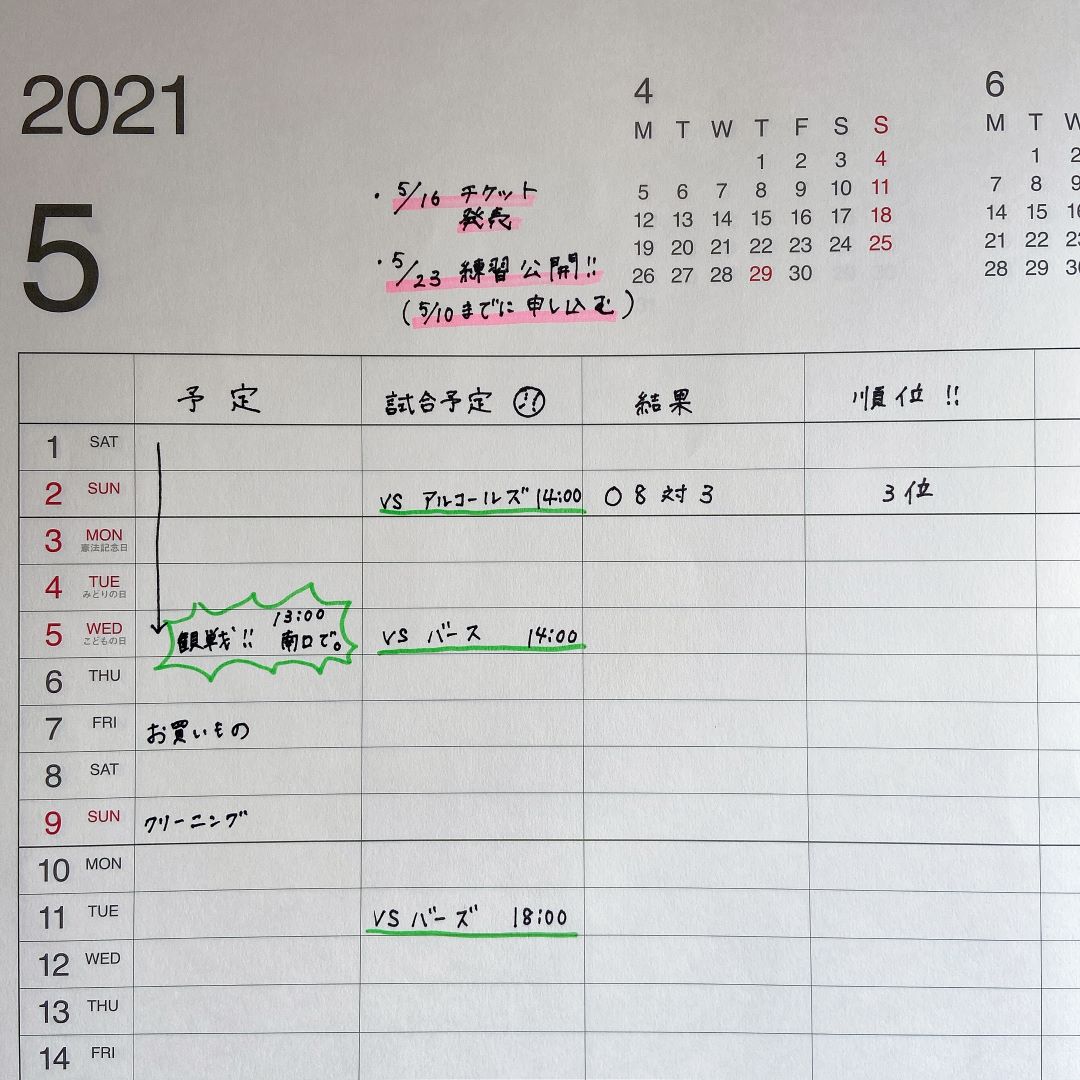 2021
5
・5/16 チケット
発売
・5/23 練習公開!!
(5/10までに申し込む)
4
M T W T F S S
1 2 3 4
5 6 7 8 9 10 11
12 13 14 15 16 17 18
19 20 21 22 23 24 25
26 27 28 29 30
6
M T W
1 2
7 8 9
14 15 16
21 22 23
28 29 30
予定 試合予定 結果 順位!!
1 SAT
2 SUN VS アルコールズ 14:00 ○ 8対3 3位
3 MON
憲法記念日
4 TUE
みどりの日
13:00
5 WED 観戦!! 南口で。 VS バース 14:00
こどもの日
6 THU
7 FRI お買いもの
8 SAT
9 SUN クリーニング
10 MON
11 TUE VS バーズ 18:00
12 WED
13 THU
14 FRI